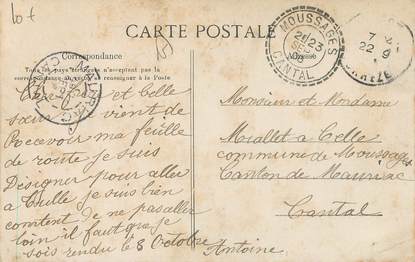 lot
CARTE POSTALE
Correspondance
Tous les pays étrangers n'acceptent pas la
correspondance de ce côté, se renseigner à la Poste
et belle
sœur vient de
Recevoir ma feuille
de route je suis
Désigner pour aller
a Tulle je suis bien
contant je ne pas aller
loin il faut que je
sois rendu le 8 Octobre
Antoine
MOUSSAGES
CANTAL
23
22 9
Monsieur et Madame
Miallet a Celle
commune de Moussages
Canton de Mauriac
Cantal